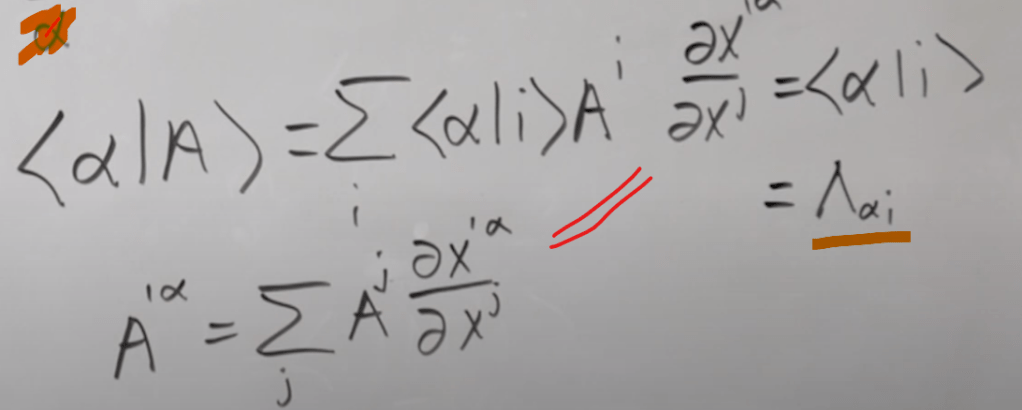 α
⟨α|A⟩ = Σ_i ⟨α|i⟩ A^i   ∂x'^α/∂x^j = ⟨α|i⟩
= Λ_αi
A'^α = Σ_j A^j ∂x'^α/∂x^j